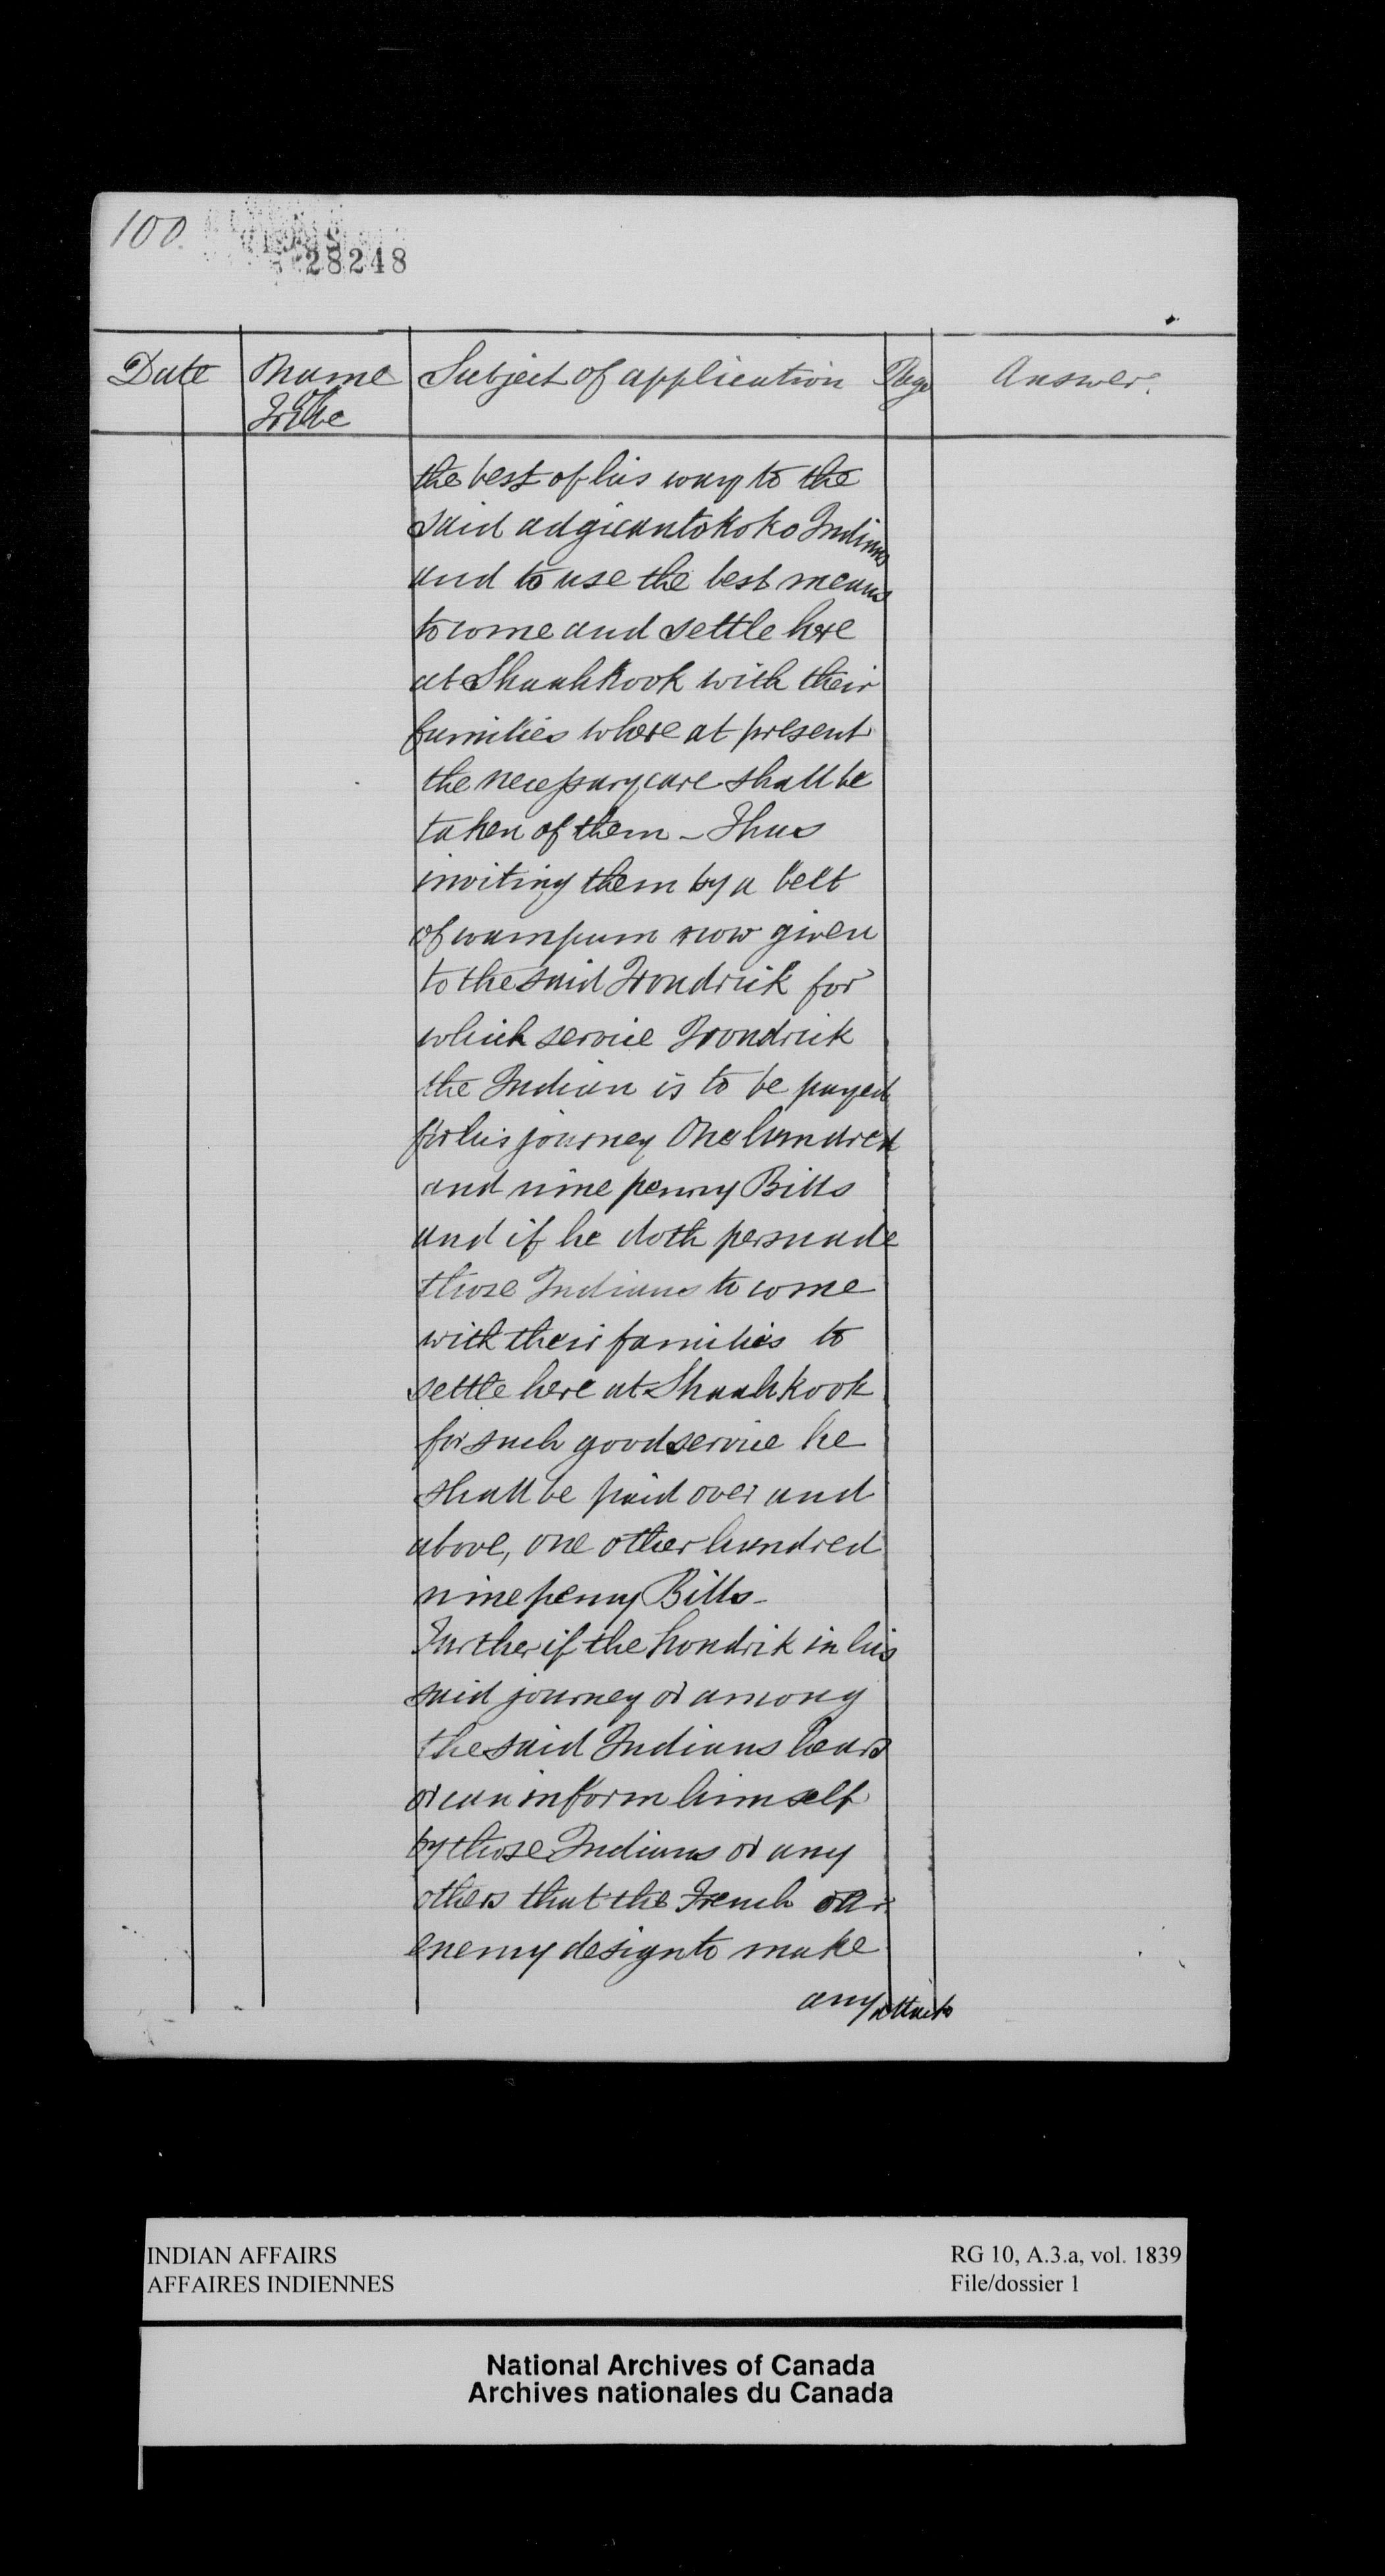 100.
28248
Date
Name
of
Tribe
Subject of application
Page
Answer.
the best of his way to the
said adgicantokoko Indians
and to use the best means
to come and settle here
at Shaahkook with their
families where at present
the necessary care shall be
taken of them - Thus
inviting them by a belt
of wampum now given
to the said Hondrick for
which service Hondrick
the Indian is to be payed
for his journey One hundred
and nine penny Bills
and if he doth persuade
those Indians to come
with their families to
settle here at Shaahkook
for such good service he
shall be paid over and
above, one other hundred
nine penny Bills -
Further if the hondrik in his
said journey or among
the said Indians hears
or can inform himself
by those Indians or any
others that the French our
enemy design to make
any attacks
INDIAN AFFAIRS
AFFAIRES INDIENNES
RG 10, A.3.a, vol. 1839
File/dossier 1
National Archives of Canada
Archives nationales du Canada